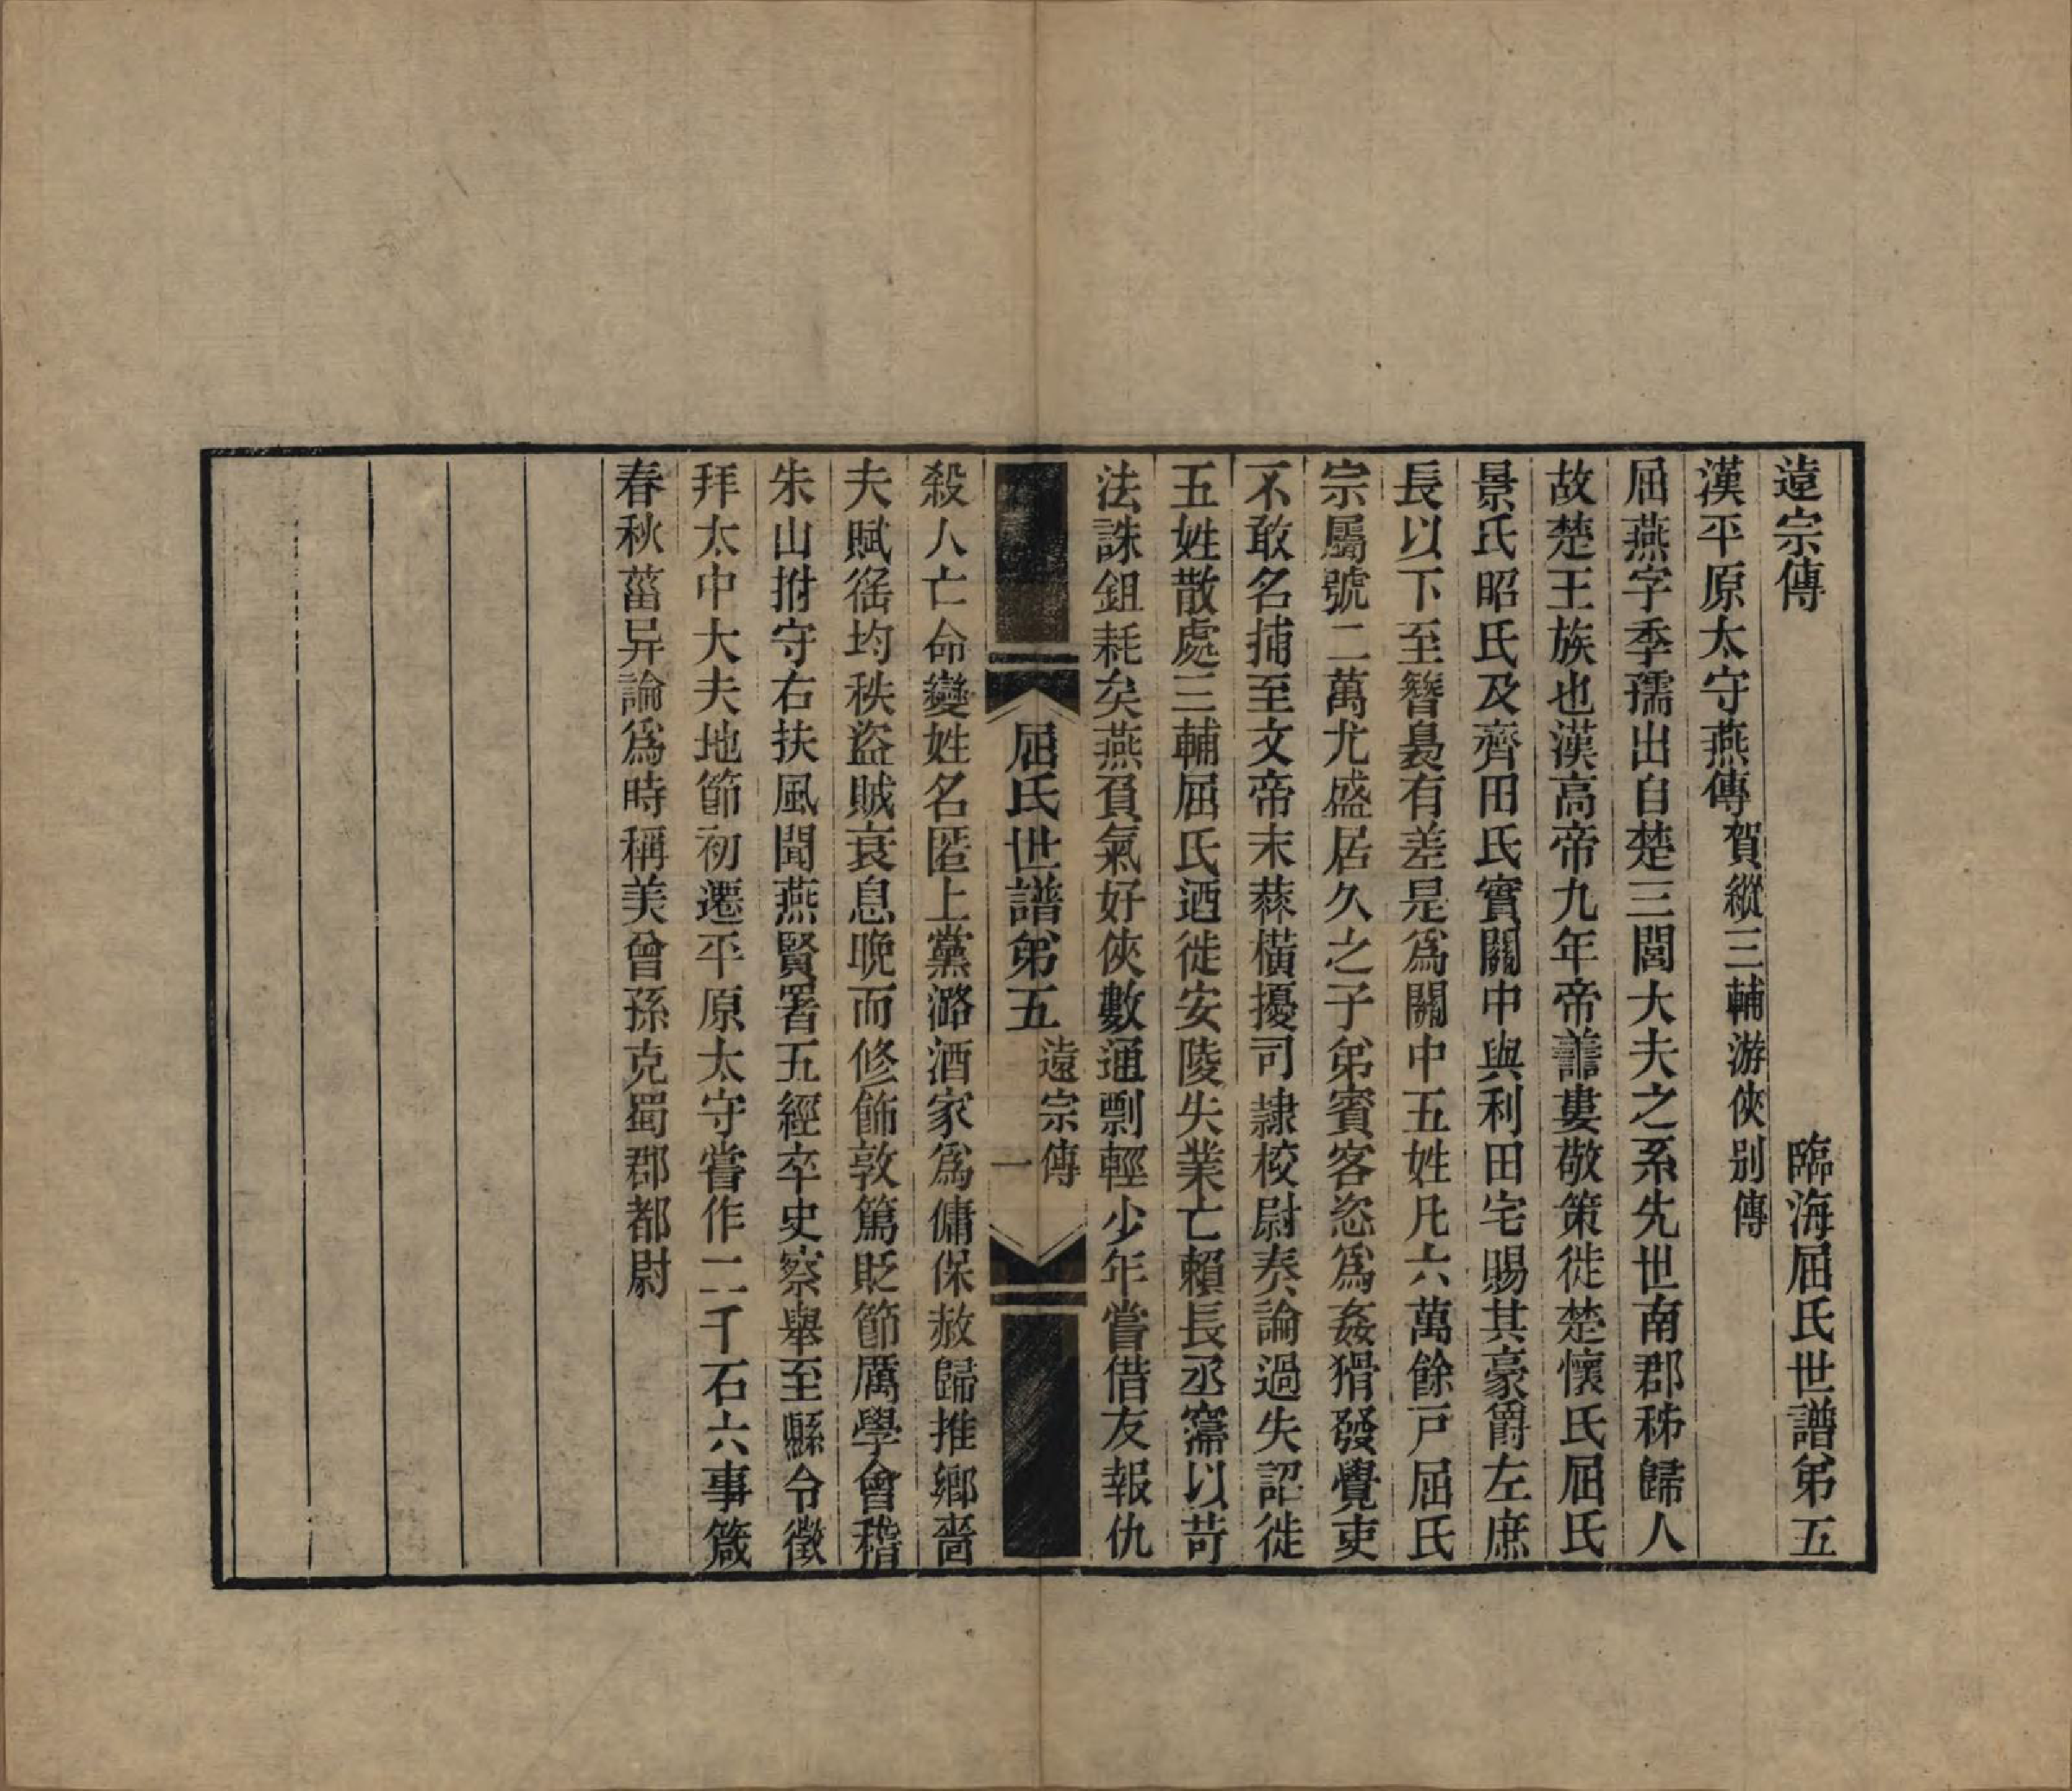 遠宗傳　臨海屈氏世譜弟五
漢平原太守燕傳賀縱三輔游俠别傳
屈燕字季孺出自楚三閭大夫之系先世南郡秭歸人
故楚王族也漢高帝九年帝譱婁敬策徙楚懷氏屈氏
景氏昭氏及齊田氏實關中與利田宅賜其豪爵左庶
長以下至簪裊有差是爲關中五姓凡六萬餘戸屈氏
宗屬號二萬尤盛居久之子弟賓客恣爲姦猾發覺吏
不敢名捕至文帝末蔡橫擾司隷校尉奏論過失詔徙
五姓散處三輔屈氏迺徙安陵失業亡賴長丞𥦬以苛
法誅鉏耗矣燕負氣好俠數通剽輕少年嘗借友報仇
屈氏世譜弟五　遠宗傳　一
殺人亡命變姓名匿上黨潞酒家爲傭保赦歸推鄉嗇
夫賦徭均秩盜賊衰息晩而修飾敦篤貶節厲學會稽
朱山拊守右扶風聞燕賢署五經卒史察舉至縣令徵
拜太中大夫地節初遷平原太守嘗作二千石六事箴
春秋菑异論爲時稱美曾孫克蜀郡都尉